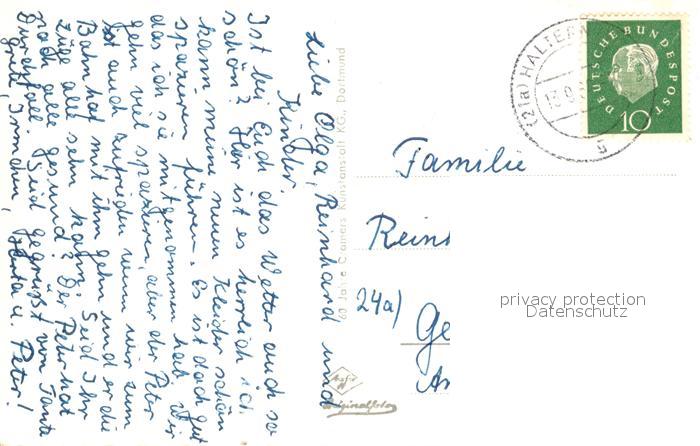 Liebe Olga, Reinhard und
Kinder
Ist bei Euch das Wetter auch so
schön? Hier ist es herrlich ich
kann meine neuen Kleider schön
spazieren führen. Es ist doch gut
das ich sie mitgenommen hab. Wir
gehn viel spazieren, aber der Peter
ist auch zufrieden wenn wir zum
Bahnhof mit ihm gehn und er die
Züge all sehn kann. Seid Ihr
noch alle gesund? Der Peter hat
Durchfall. Seid gegrüßt von Tante
Grete, Irmchen, u. Peter!
60 Jahre Cramers Kunstanstalt KG., Dortmund
Agfa
Originalfoto
(21a) HALTERN
13.9.
a
DEUTSCHE BUNDESPOST
10
Familie
Rein
24a) Ge
privacy protection
Datenschutz